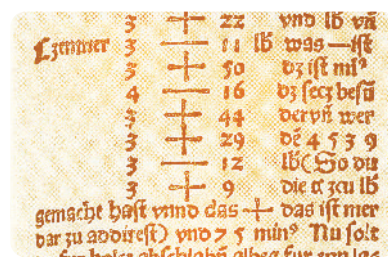 3 + 22 vnd lb vñ
Czentner 3 — 11 lb was — ist
3 + 50 dz ist miᵒ
4 — 16 dz secz besũ
3 + 44 der vñ wer
3 + 29 dẽ 4539
3 — 12 lb (So du
3 + 9 die czcu lb
gemacht hast vnnd das + das ist mer
dar zu addirest) vnd 75 minᵒ Nu solt
fur holcz abschlahñ albeg fur